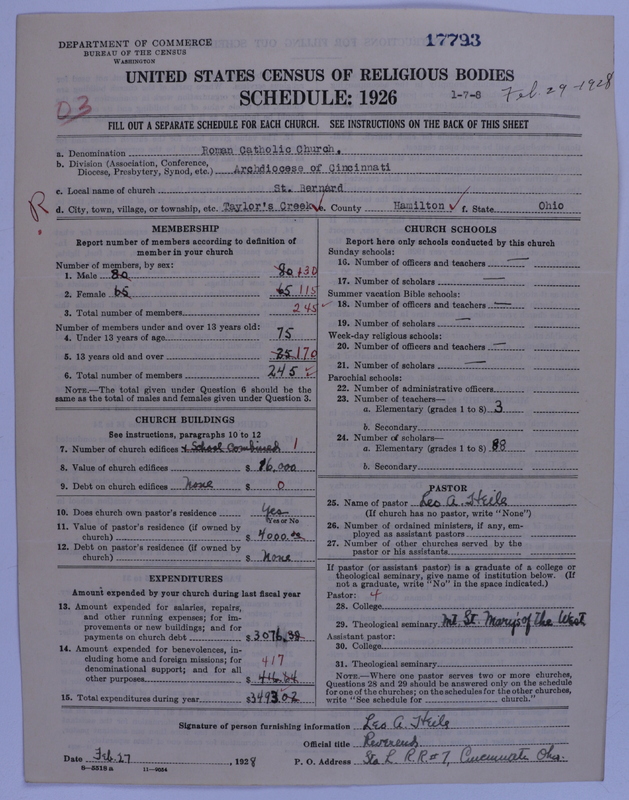 DEPARTMENT OF COMMERCE
BUREAU OF THE CENSUS
WASHINGTON
17793
UNITED STATES CENSUS OF RELIGIOUS BODIES
SCHEDULE: 1926
1-7-8
Feb. 29-1928
03
FILL OUT A SEPARATE SCHEDULE FOR EACH CHURCH. SEE INSTRUCTIONS ON THE BACK OF THIS SHEET
a. Denomination Roman Catholic Church.
b. Division (Association, Conference, Diocese, Presbytery, Synod, etc.) Archdiocese of Cincinnati
c. Local name of church St. Bernard
R.
d. City, town, village, or township, etc. Taylor's Creek e. County Hamilton f. State Ohio
MEMBERSHIP
Report number of members according to definition of member in your church
Number of members, by sex:
1. Male 80 80 130
2. Female 65 65 115
3. Total number of members 245
Number of members under and over 13 years old:
4. Under 13 years of age 75
5. 13 years old and over 85 170
6. Total number of members 245
NOTE.—The total given under Question 6 should be the same as the total of males and females given under Question 3.
CHURCH BUILDINGS
See instructions, paragraphs 10 to 12
7. Number of church edifices & School Combined 1
8. Value of church edifices $ 16,000
9. Debt on church edifices None $ 0
10. Does church own pastor's residence Yes
Yes or No
11. Value of pastor's residence (if owned by church) $ 4000.00
12. Debt on pastor's residence (if owned by church) $ None
EXPENDITURES
Amount expended by your church during last fiscal year
13. Amount expended for salaries, repairs, and other running expenses; for improvements or new buildings; and for payments on church debt $ 3,076.38
14. Amount expended for benevolences, including home and foreign missions; for denominational support; and for all other purposes 417 $ 416.64
15. Total expenditures during year $ 3493.02
CHURCH SCHOOLS
Report here only schools conducted by this church
Sunday schools:
16. Number of officers and teachers —
17. Number of scholars —
Summer vacation Bible schools:
18. Number of officers and teachers —
19. Number of scholars —
Week-day religious schools:
20. Number of officers and teachers —
21. Number of scholars —
Parochial schools:
22. Number of administrative officers
23. Number of teachers—
a. Elementary (grades 1 to 8) 3
b. Secondary
24. Number of scholars—
a. Elementary (grades 1 to 8) 88
b. Secondary
PASTOR
25. Name of pastor Leo A. Heile
(If church has no pastor, write "None")
26. Number of ordained ministers, if any, employed as assistant pastors
27. Number of other churches served by the pastor or his assistants
If pastor (or assistant pastor) is a graduate of a college or theological seminary, give name of institution below. (If not a graduate, write "No" in the space indicated.)
Pastor: 4
28. College
29. Theological seminary Mt. St. Mary's of the West
Assistant pastor:
30. College
31. Theological seminary
NOTE.—Where one pastor serves two or more churches, Questions 28 and 29 should be answered only on the schedule for one of the churches; on the schedules for the other churches, write "See schedule for ______ church."
Signature of person furnishing information Leo A. Heile
Official title Reverend
Date Feb. 27, 1928 P. O. Address Sta L. R.R.#7, Cincinnati Ohio.
8-5518 a 11-9054